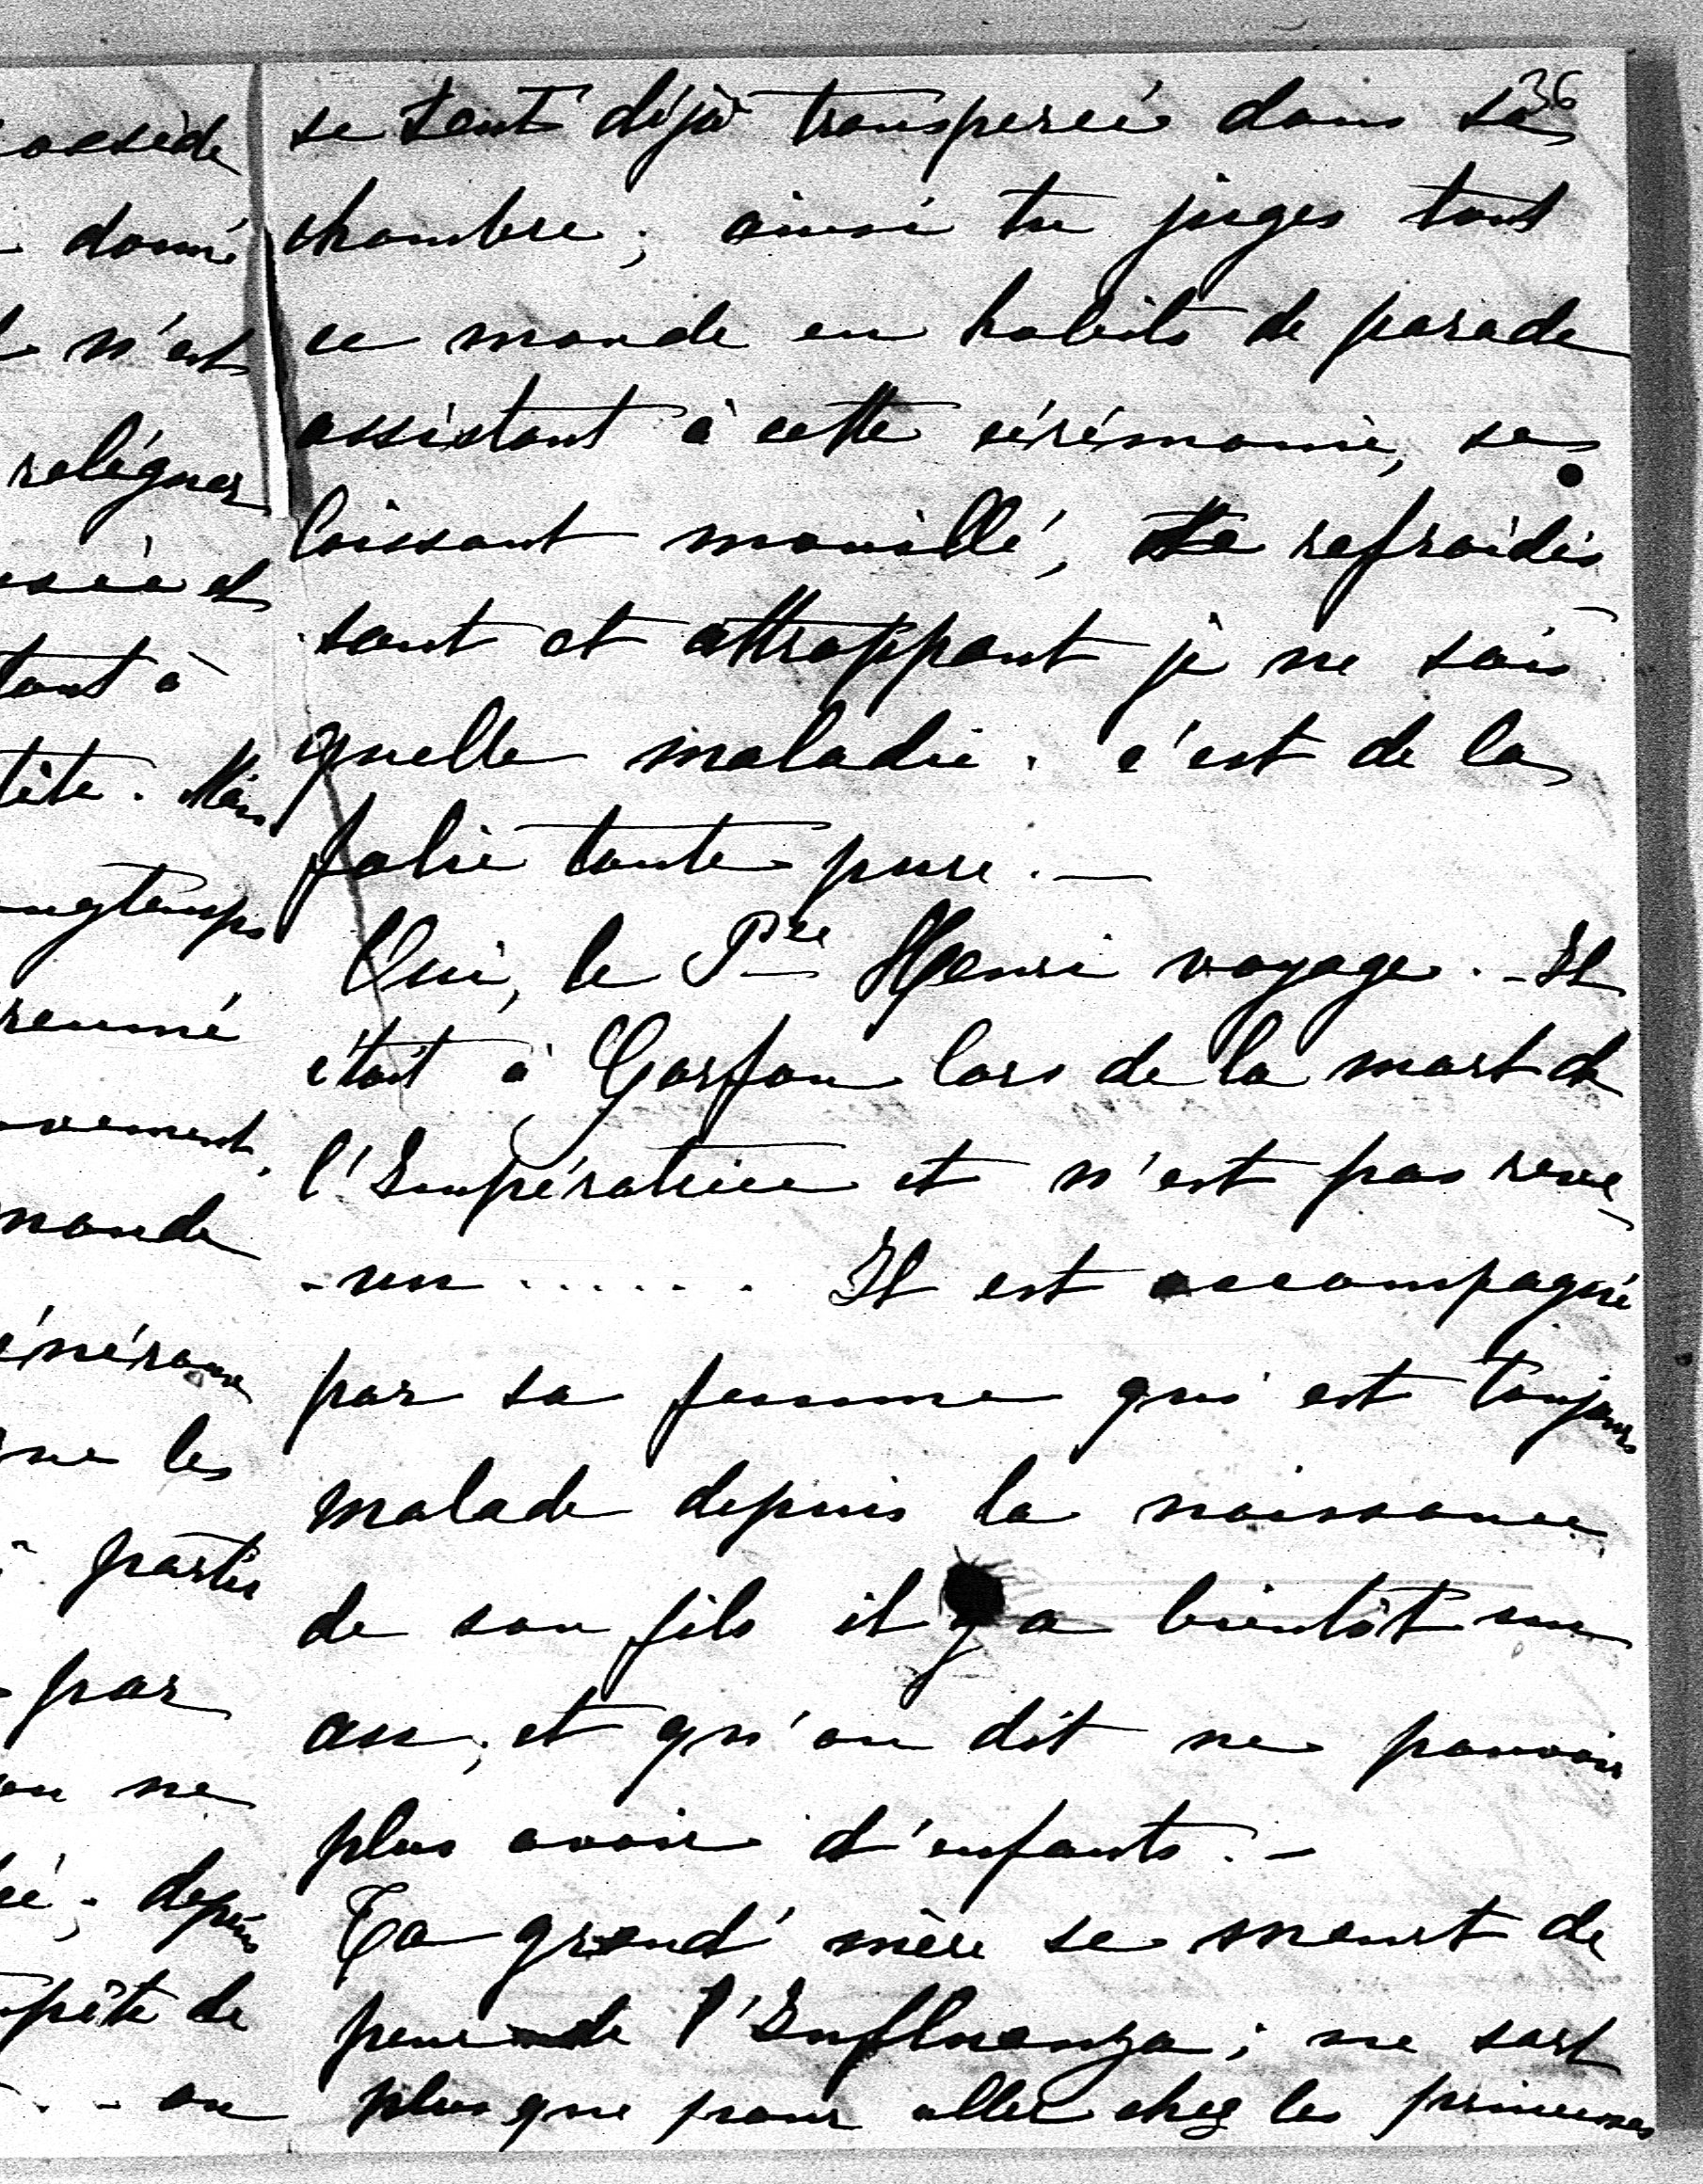 36
se sent déjà transpercée dans sa
chambre ; ainsi tu juges tout
ce monde en habits de parade
assistant à cette cérémonie, se
laissant mouillé, se refroidis
sant et attrappant je ne sais
quelle maladie. c'est de la
folie toute pure. —
Oui, le Pce Henri voyage. - Il
était à Corfou lors de la mort de
l'Impératrice et n'est pas reve
- nu ...... Il est accompagné
par sa femme qui est toujours
malade depuis la naissance
de son fils il y a bientôt un
an ; et qu'on dit ne pouvoir
plus avoir d'enfants. -
Ta grand' mère se meurt de
peur de l'Influenza ; ne sort
plus que pour aller chez les princesses
donné
n'est
reléguer
tant à
tête. Mais
monde
les
partir
par
ne
depuis
de
on